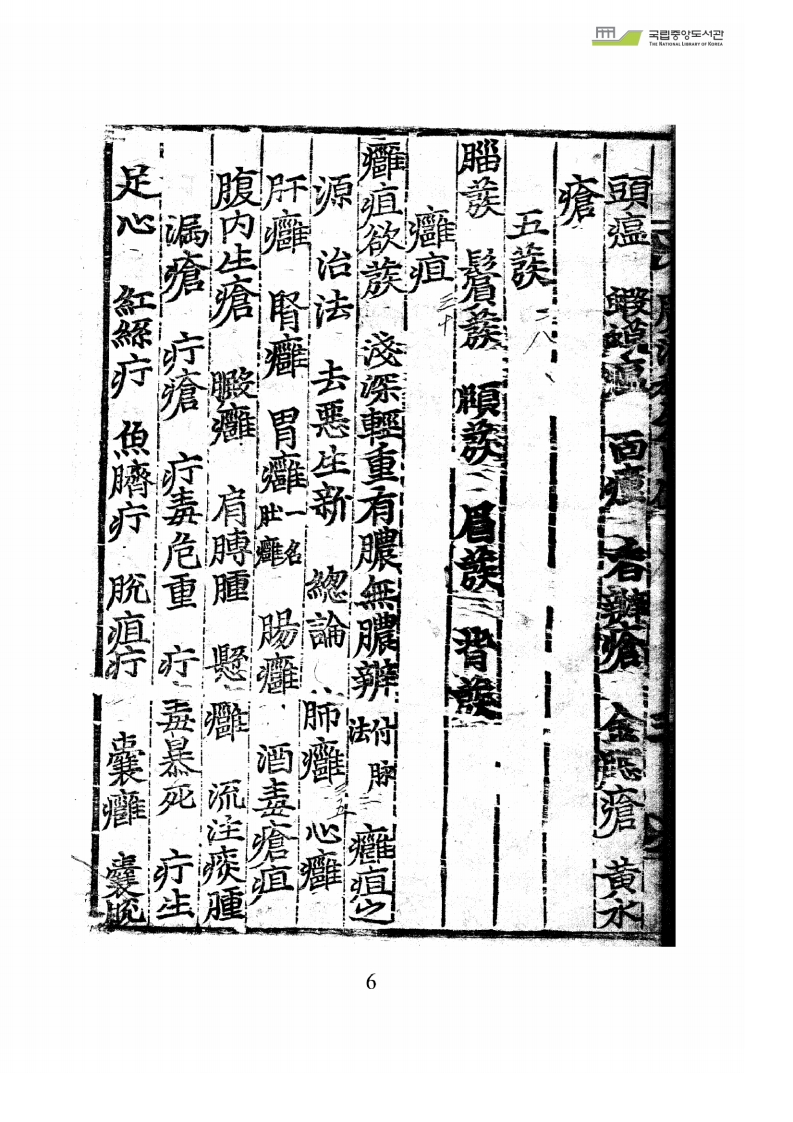 국립중앙도서관
THE NATIONAL LIBRARY OF KOREA
頭瘟 蝦蟆瘟 面瘡 香瓣瘡 金 瘡 黃水
瘡
五䯻 二八
腦䯻 鬢䯻 䪼䯻 眉䯻 背䯻
癰疽 三十
癰疽欲䯻 淺深輕重有膿無膿辨 付脉法 癰疽之
源 治法 去惡生新 總論 肺癰 三五 心癰
肝癰 腎癰 胃癰 一名肚癰 腸癰 酒毒瘡疽
腹內生瘡 腋癰 肩膊腫 懸癰 流注痰腫
漏瘡 疔瘡 疔毒危重 疔毒暴死 疔生
足心 紅絲疔 魚臍疔 脫疽疔 囊癰 囊脫
6